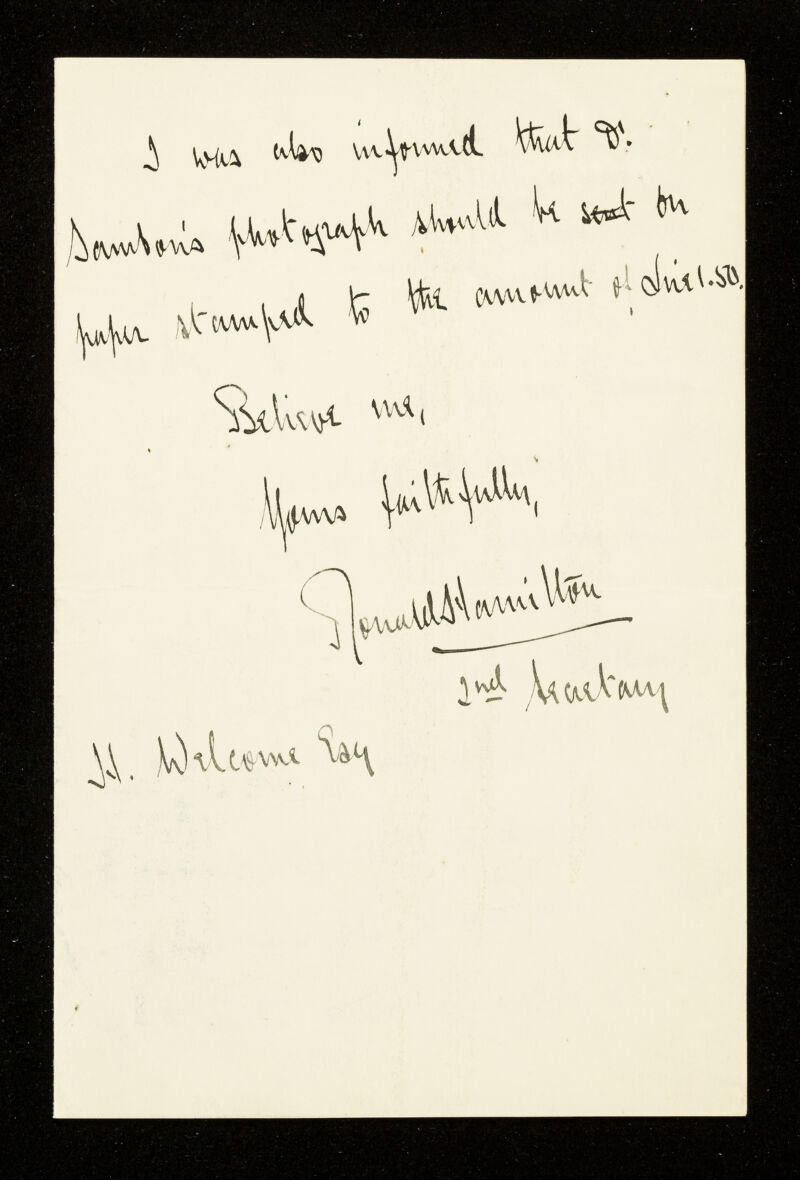 I was also informed that Dr.
Sambon's photograph should be sent on
paper stamped to the amount of Lire 1.50.
Believe me,
Yours faithfully,
Ronald Hamilton
2nd Secretary
H. Welcome Esq